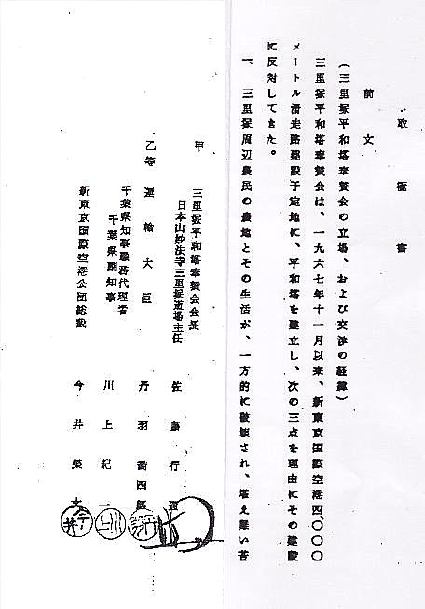 取極書
前文
（三里塚平和塔奉賛会の立場、および交渉の経緯）
三里塚平和塔奉賛会は、一九六七年十一月以来、新東京国際空港四〇〇〇
メートル滑走路建設予定地に、平和塔を建立し、次の三点を理由にその建設
に反対してきた。
一、三里塚周辺農民の農地とその生活が、一方的に破壊され、堪え難い苦
甲
三里塚平和塔奉賛会会長
日本山妙法寺三里塚道場主任
佐藤行
乙等
運輸大臣
丹羽喬四郎
千葉県知事職務代理者
千葉県副知事
川上紀一
新東京国際空港公団総裁
今井栄文